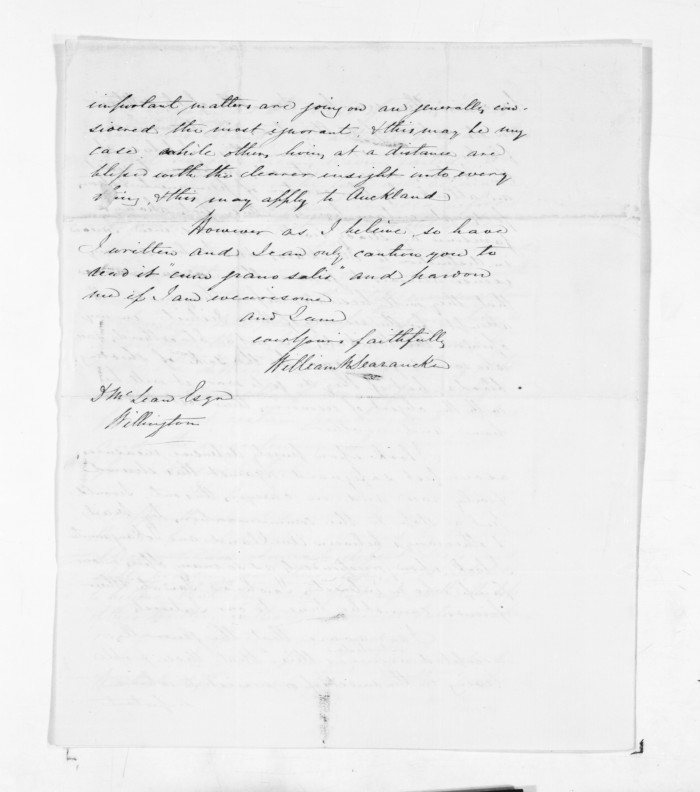 important matters are going on are generally con-
sidered the most ignorant, & this may be my
case while others living at a distance are
blessed with the clearer insight into every
thing & this may apply to Auckland
However as I believe so have
I written and I can only caution you to
read it "cum grano salis" and pardon
me if I am wearisome
and I am
ever yours faithfully
William N Searancke
D McLean Esqre
Wellington